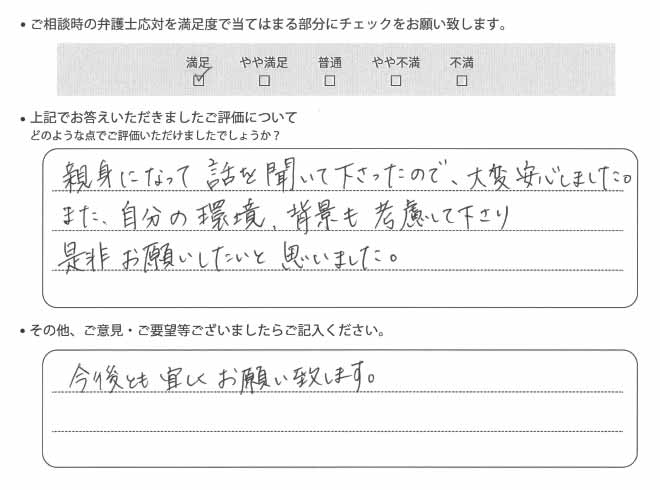 • ご相談時の弁護士応対を満足度で当てはまる部分にチェックをお願い致します。
満足 やや満足 普通 やや不満 不満
☑ ☐ ☐ ☐ ☐
• 上記でお答えいただきましたご評価について
どのような点でご評価いただけましたでしょうか？
親身になって話を聞いて下さったので、大変安心しました。
また、自分の環境、背景も考慮して下さり
是非お願いしたいと思いました。
• その他、ご意見・ご要望等ございましたらご記入ください。
今後とも宜しくお願い致します。